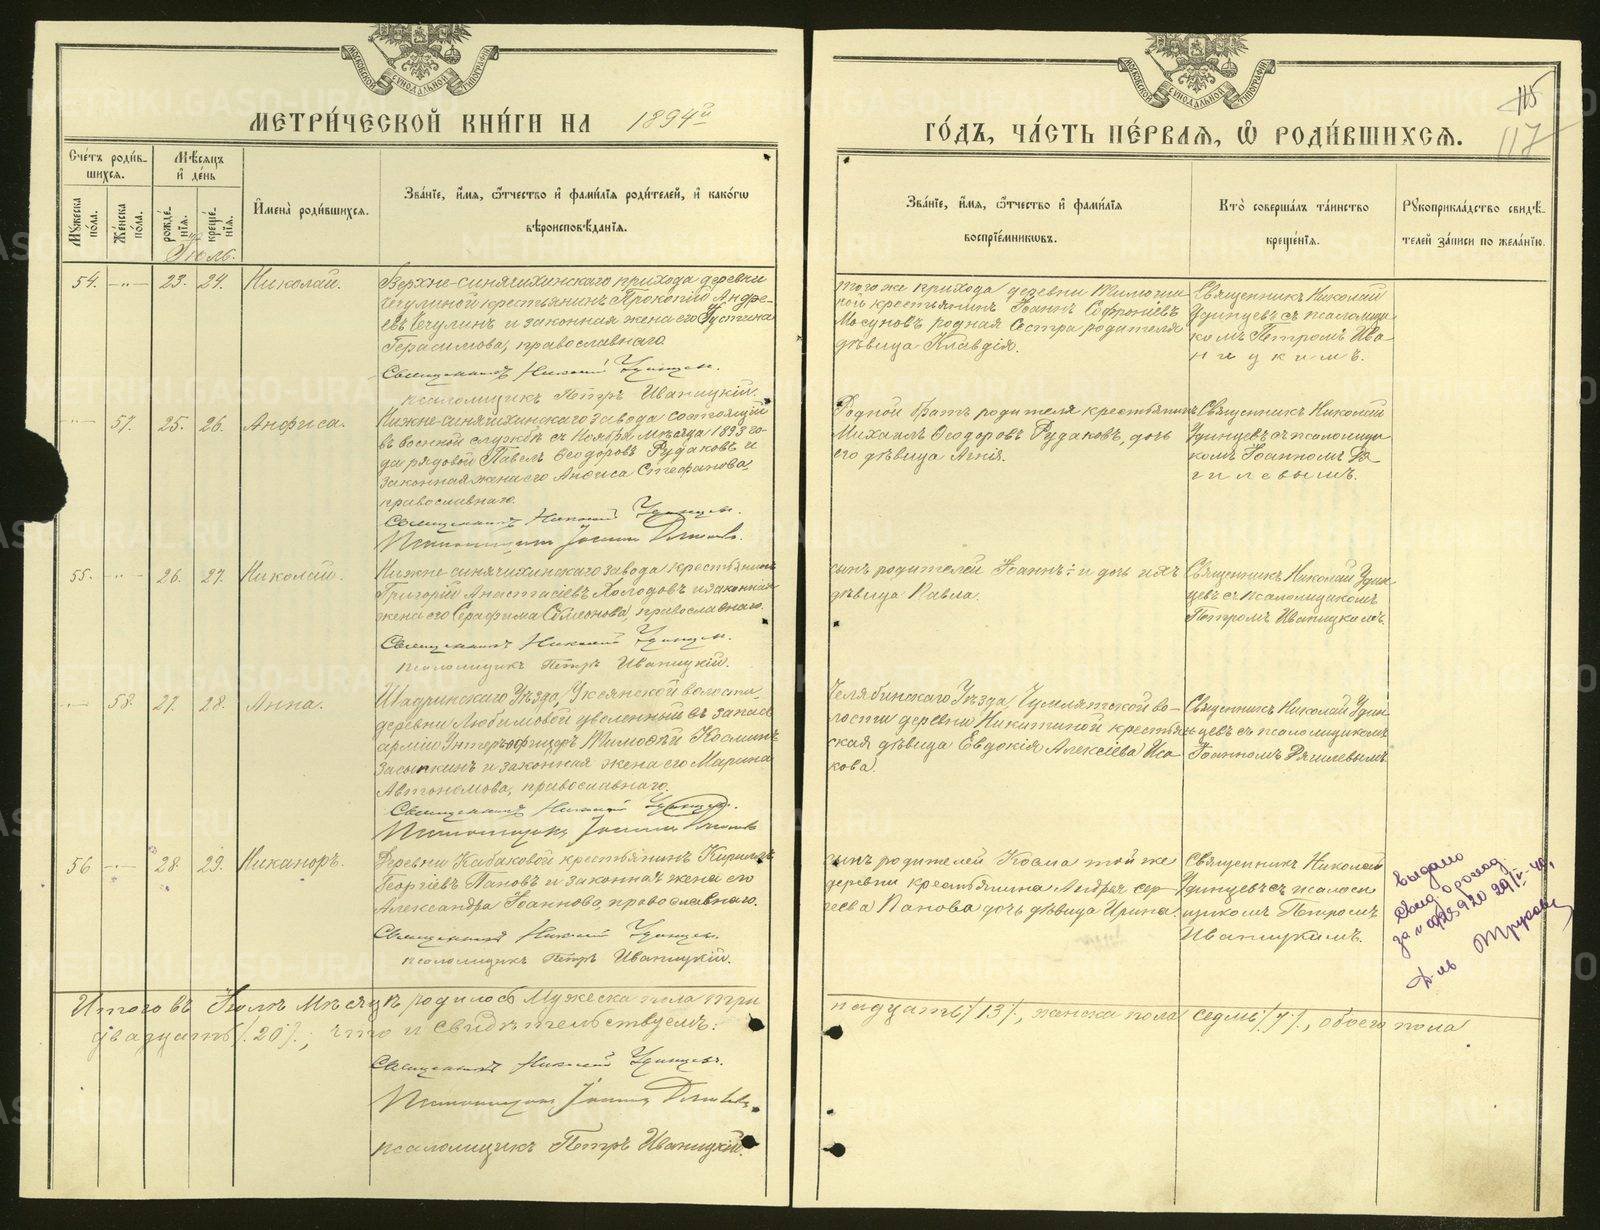 МЕТРИ́ЧЕСКОЙ КНИ́ГИ НА 1894й
ГО́ДЪ, ЧА́СТЬ ПЕ́РВАЯ, Ѡ РОДИ́ВШИХСЯ.
115
117
Сче́тъ роди́в-
шихся.
Мѣ́сяцъ
и де́нь
Мꙋ́жеска
по́ла.
Же́нска
по́ла.
рожде́-
нїя.
креще́-
нїя.
Имена̀ роди́вшихся.
Зва́нїе, и́мя, ѻ́тчество и фами́лїя роди́телей, и како́гѡ
вѣроисповѣ́данїя.
Зва́нїе, и́мя, ѻ́тчество и фами́лїя
воспрїе́мникѡвъ.
Кто̀ соверша́лъ та́инство
креще́нїя.
Рꙋкоприкла́дство свидѣ́-
телей за́писи по жела́нїю.
Іюль.
54. -"- 23. 24. Николай.
Верхне-синячихинскаго прихода деревни
Чечулиной крестьянинъ Прокопій Андре-
евъ Чечулинъ и законная жена его Іустина
Герасимова, православнаго
Священникъ Николай Удинцев.
псаломщикъ Петръ Иваницкій.
тогоже прихода деревни Тимошин
ной крестьянинъ Іоаннъ Софроніевъ
Мосуновъ родная Сестра родителя
дѣвица Клавдія.
Священникъ Николай
Удинцевъ съ псаломщи
комъ Петромъ Ива
ницкимъ.
57. 25. 26. Анфиса.
Нижне-синячихинскаго завода состоящій
въ военной службѣ съ Ноября мѣсяца 1893 го-
да рядовой Павелъ Ѳеодоровъ Рудаковъ и
законная жена его Анфиса Стефанова,
православнаго.
Священникъ Николай Удинцев.
Псаломщикъ Іоаннъ Дягилевъ.
Родной братъ родителя крестьянинъ
Михаилъ Ѳеодоровъ Рудаковъ, дочь
его дѣвица Агнія.
Священникъ Николай
Удинцевъ съ псаломщи
комъ Іоанномъ Дя
гилевымъ.
55. -"- 26. 27. Николай.
Нижне синячихинскаго завода крестьянинъ
Григорій Анастасіевъ Холодовъ и законная
жена его Серафима Симеонова, православнаго.
Священникъ Николай Удинцев.
псаломщикъ Петръ Иваницкій.
сынъ родителей Іоаннъ и дочь ихъ
дѣвица Павла.
Священникъ Николай Удин
цевъ съ псаломщикомъ
Петромъ Иваницкимъ
58. 27. 28. Анна.
Шадринскаго Уѣзда, Уксянской волости,
деревни Любимовой уволенный въ запасъ
арміи Унтеръ-офицеръ Тимоѳей Косминъ
Засыпкинъ и законная жена его Марина
Автономова, православнаго.
Священникъ Николай Удинцев.
Псаломщикъ Іоаннъ Дягилевъ
Челябинскаго Уѣзда, Чумлятской во-
лости деревни Никитиной крестьян
ская дѣвица Евдокія Алексіева Иса
кова.
Священникъ Николай Удин
цевъ съ псаломщикомъ
Іоанномъ Дягилевымъ
56 28. 29. Никаноръ.
Деревни Кабаковой крестьянинъ Кириллъ
Георгіевъ Пановъ и законная жена его
Александра Іоаннова, православнаго.
Священникъ Николай Удинцев.
псаломщикъ Петръ Иваницкій.
сынъ родителей Косма той же
деревни крестьянина Андрея Сер-
геева Панова дочь дѣвица Ирина.
Священникъ Николай
Удинцевъ съ псалом
щикомъ Петромъ
Иваницкимъ.
Выдано
свид. о рожд.
Д-ль
Итого въ Іюлѣ Мѣсяцѣ родилось Мужеска пола три
надцать /13/, женска пола седмь /7/, обоего пола
двадцать /20/, что и свидѣтельствуемъ:
Священникъ Николай Удинцев.
Псаломщикъ Іоаннъ Дягилевъ.
псаломщикъ Петръ Иваницкій.